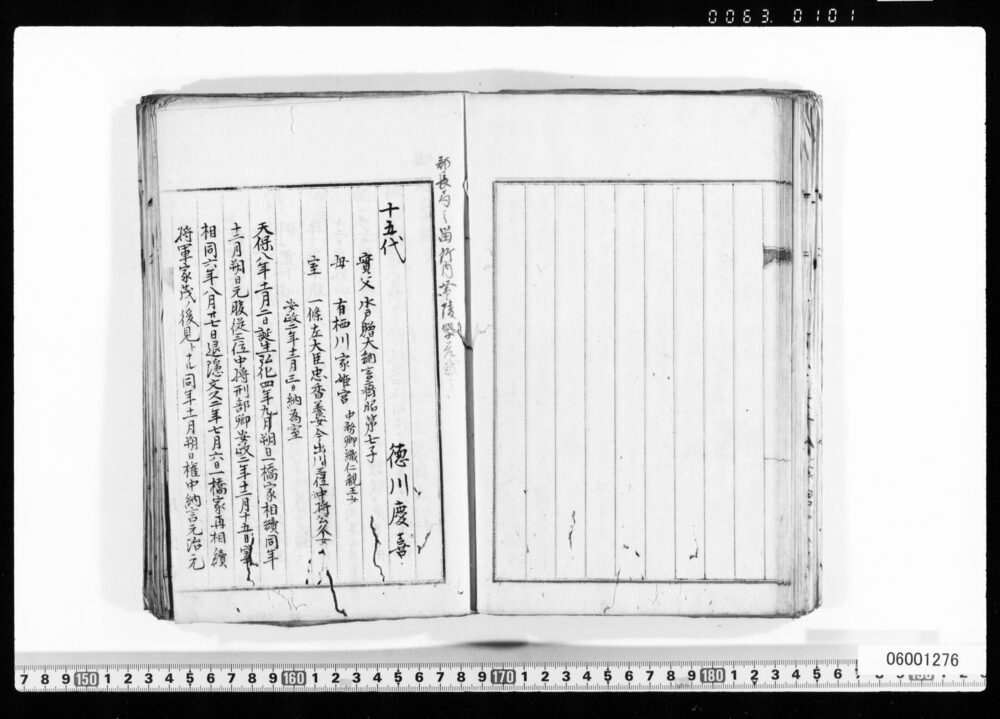 0063. 0101
十五代
徳川慶喜
實父 水戸贈大納言齊昭第七子
母 有栖川家姫宮 中務卿織仁親王女
室 一條左大臣忠香養女今出川三位中将公久女
安政二年十二月三日納為室
天保八年九月二日誕生弘化四年九月朔日一橋家相續同年
十二月朔日元服従三位中将刑部卿安政二年十二月十五日宰
相同六年八月廿七日退隠文久二年七月六日一橋家再相續
将軍家茂ノ後見トナル同年十一月朔日権中納言元治元
7 8 9 150 1 2 3 4 5 6 7 8 9 160 1 2 3 4 5 6 7 8 9 170 1 2 3 4 5 6 7 8 9 180 1 2 3 4 5 6
06001276